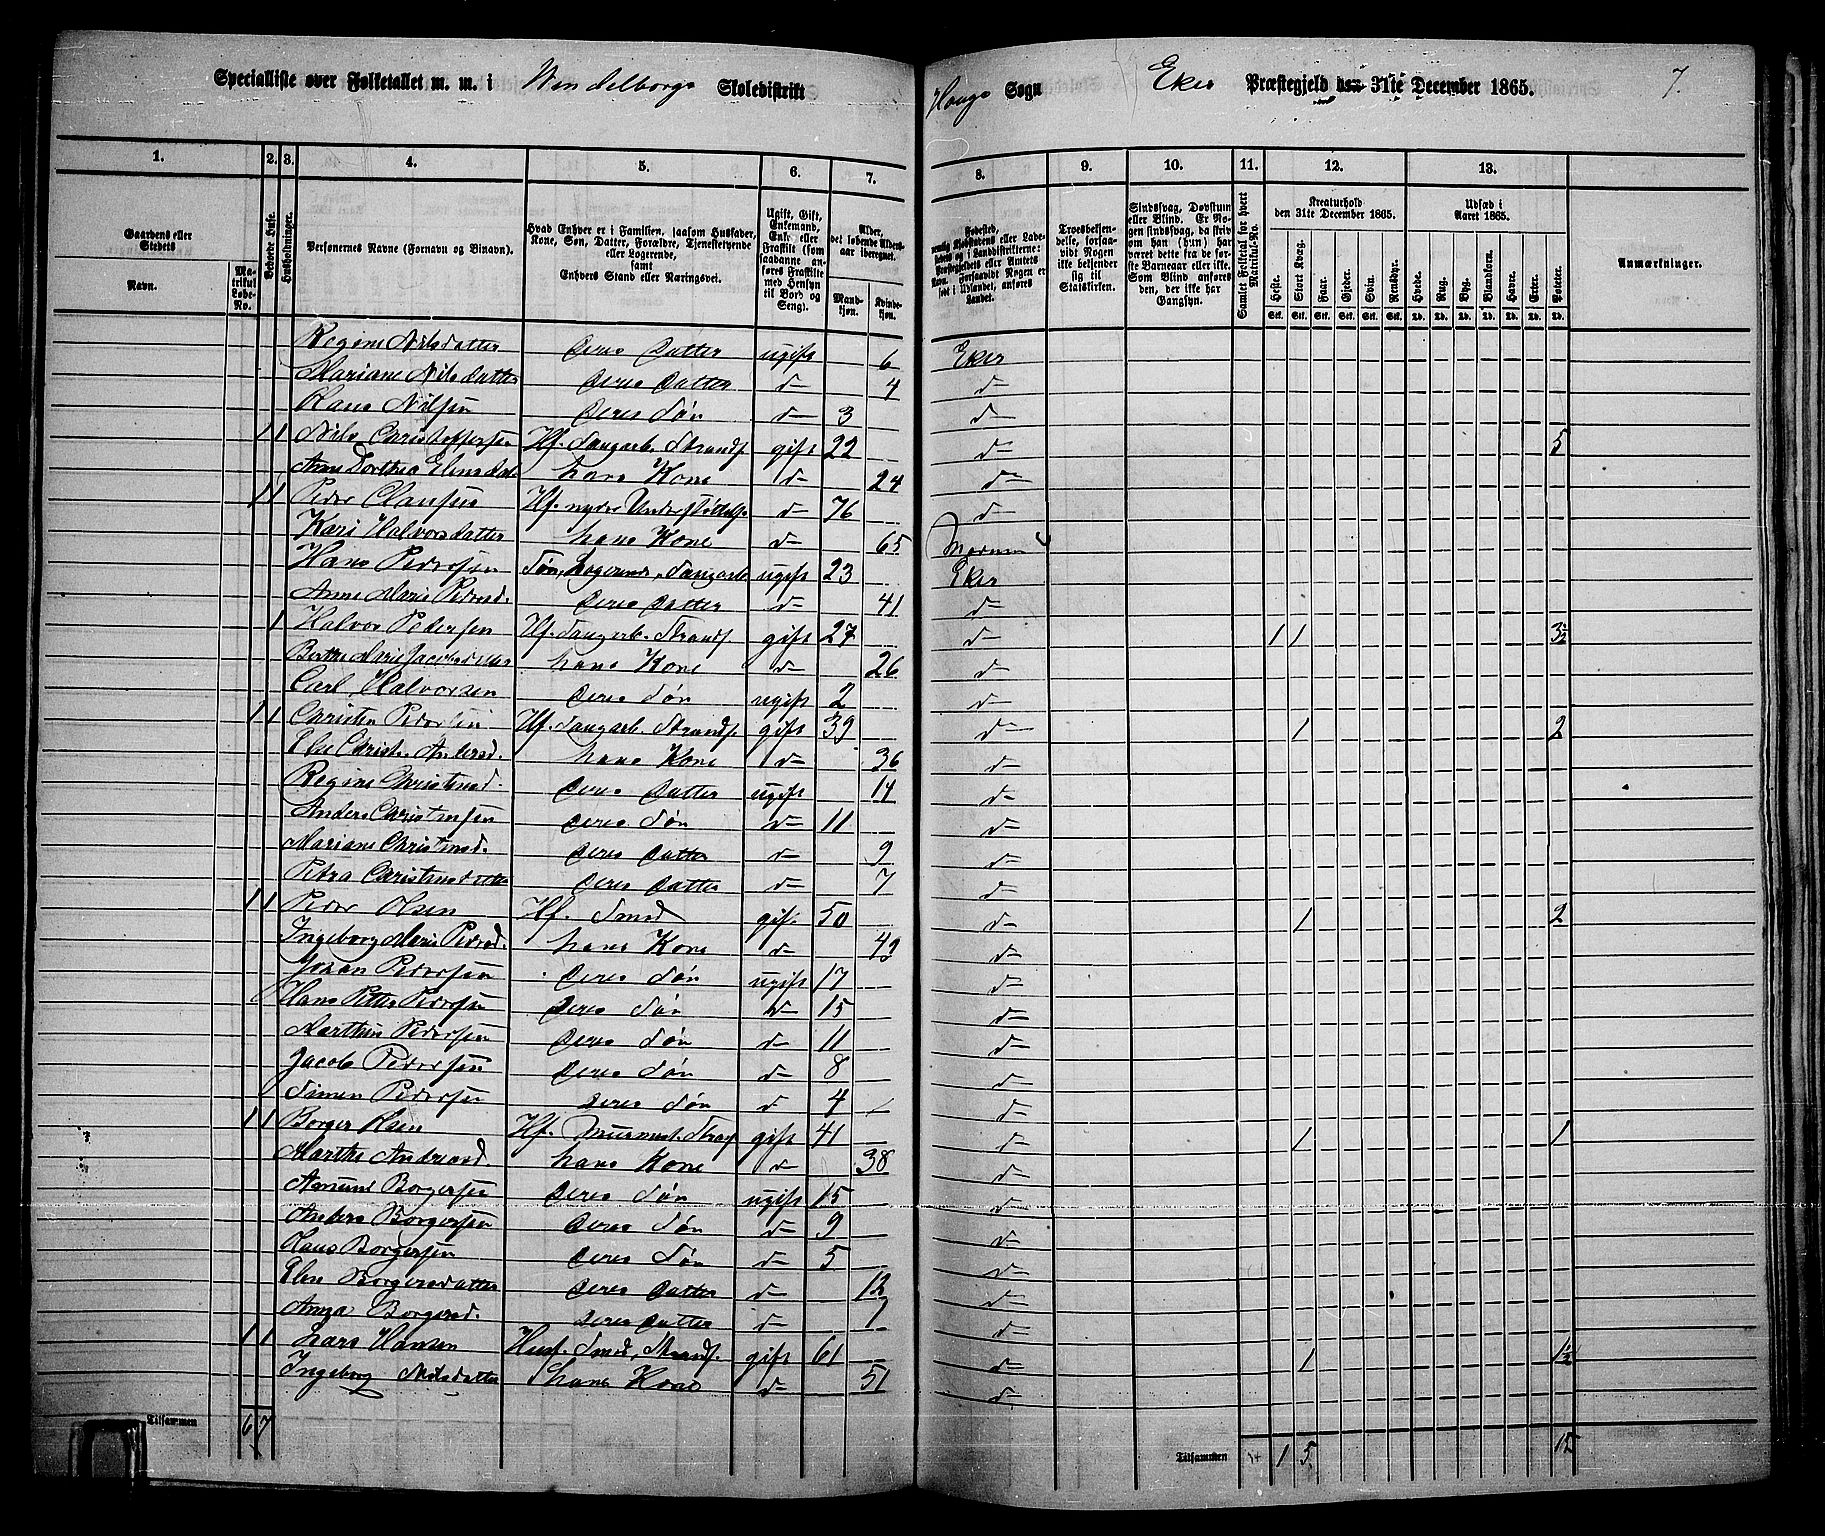 Specialliste over Folketallet m. m. i Wendelborgs Skoledistrikt
Hougs Sogn Eker Præstegjeld den 31te December 1865. 7.
1. 2. 3. 4. 5. 6. 7. 8. 9. 10. 11. 12. 13.
Gaardens eller Stedets
Navn. Matrikul Løbe-No.
Beboede Huse.
Husholdninger.
Personernes Navne (Fornavn og Binavn).
Hvad Enhver er i Familien, saasom Husfader, Kone, Søn, Datter, Forældre, Tjenestetyende eller Logerende, samt Enhvers Stand eller Næringsvei.
Ugift, Gift, Enkemand, Enke eller Fraskilt (som saadanne anføres Fraskilte med Hensyn til Bord og Seng).
Alder, det løbende Alders-aar iberegnet.
Mandkjøn. Kvindekjøn.
Troesbekjendelse, forsaavidt Nogen ikke bekjender sig til Statskirken.
Sindssvag, Døvstum eller Blind. Er Nogen sindssvag, da skriv om han (hun) har været dette fra de første Barneaar eller ikke. Som Blind anføres den, der ikke har Gangsyn.
Samlet Folketal for hvert Matrikul-No.
Kreaturhold den 31te December 1865.
Udsæd i Aaret 1865.
Anmærkninger.
Heste. Stort Kvæg. Faar. Gjeder. Svin. Rensdyr. Hvede. Rug. Byg. Blandkorn. Havre. Erter. Poteter.
Regine Nilsdatter Deres Datter ugift 6 Eker
Mariane Nilsdatter Deres Datter d— 4 d—
Hans Nilsen Deres Søn d— 3 d—
1 1 Nils Christoffersen Hf. Saugarb. Strands. gift 22 d— 5
Anne Dorthea hans Kone d— 24 d—
1 1 Peder Clausen Hf. nyder Understøttelse d— 76 d—
Kari Halvorsdatter hans Kone d— 65 Modum
Hans Pedersen Søn, Logerende, Saugarb ugift 23 Eker
Anne Marie Pedersd. Deres Datter d— 41 d—
1 Halvor Pedersen Hf. Saugarb. Strands. gift 27 d— 1 1 3½
Berthe Marie Jacobsdatter hans Kone d— 26 d—
Carl Halvorsen Deres Søn ugift 2 d—
1 1 Christen Pedersen Hf. Saugarb. Strands. gift 39 d— 1 2
Else Christine Andersd. hans Kone d— 36 d—
Regine Christensd. Deres Datter ugift 14 d—
Anders Christensen Deres Søn d— 11 d—
Mariane Christensd. Deres Datter d— 9 d—
Petra Christensdatter Deres Datter d— 7 d—
1 1 Peder Olsen Hf. Smed gift 50 d— 1 2
Ingeborg Marie Pedersd. hans Kone d— 42 d—
Johan Pedersen Deres Søn ugift 17 d—
Hans Petter Pedersen Deres Søn d— 15 d—
Marthin Pedersen Deres Søn d— 11 d—
Jacob Pedersen Deres Søn d— 8 d—
Simen Pedersen Deres Søn d— 4 d—
1 1 Borger Olsen Hf. Murmest. Strands gift 41 d— 1 1
Marthe Andreasd. hans Kone d— 38 d—
Amund Borgersen Deres Søn ugift 15 d—
Anders Borgersen Deres Søn d— 9 d—
Hans Borgersen Deres Søn d— 5 d—
Else Borgersdatter Deres Datter d— 12 d—
Anna Borgersd. Deres Datter d— 7 d—
1 1 Lars Hansen Husf. Smed, Strands. gift 61 d— 1 1½
Ingeborg Nilsdatter hans Kone d— 51 d—
Tilsammen 6 7
Tilsammen 1 5. 15